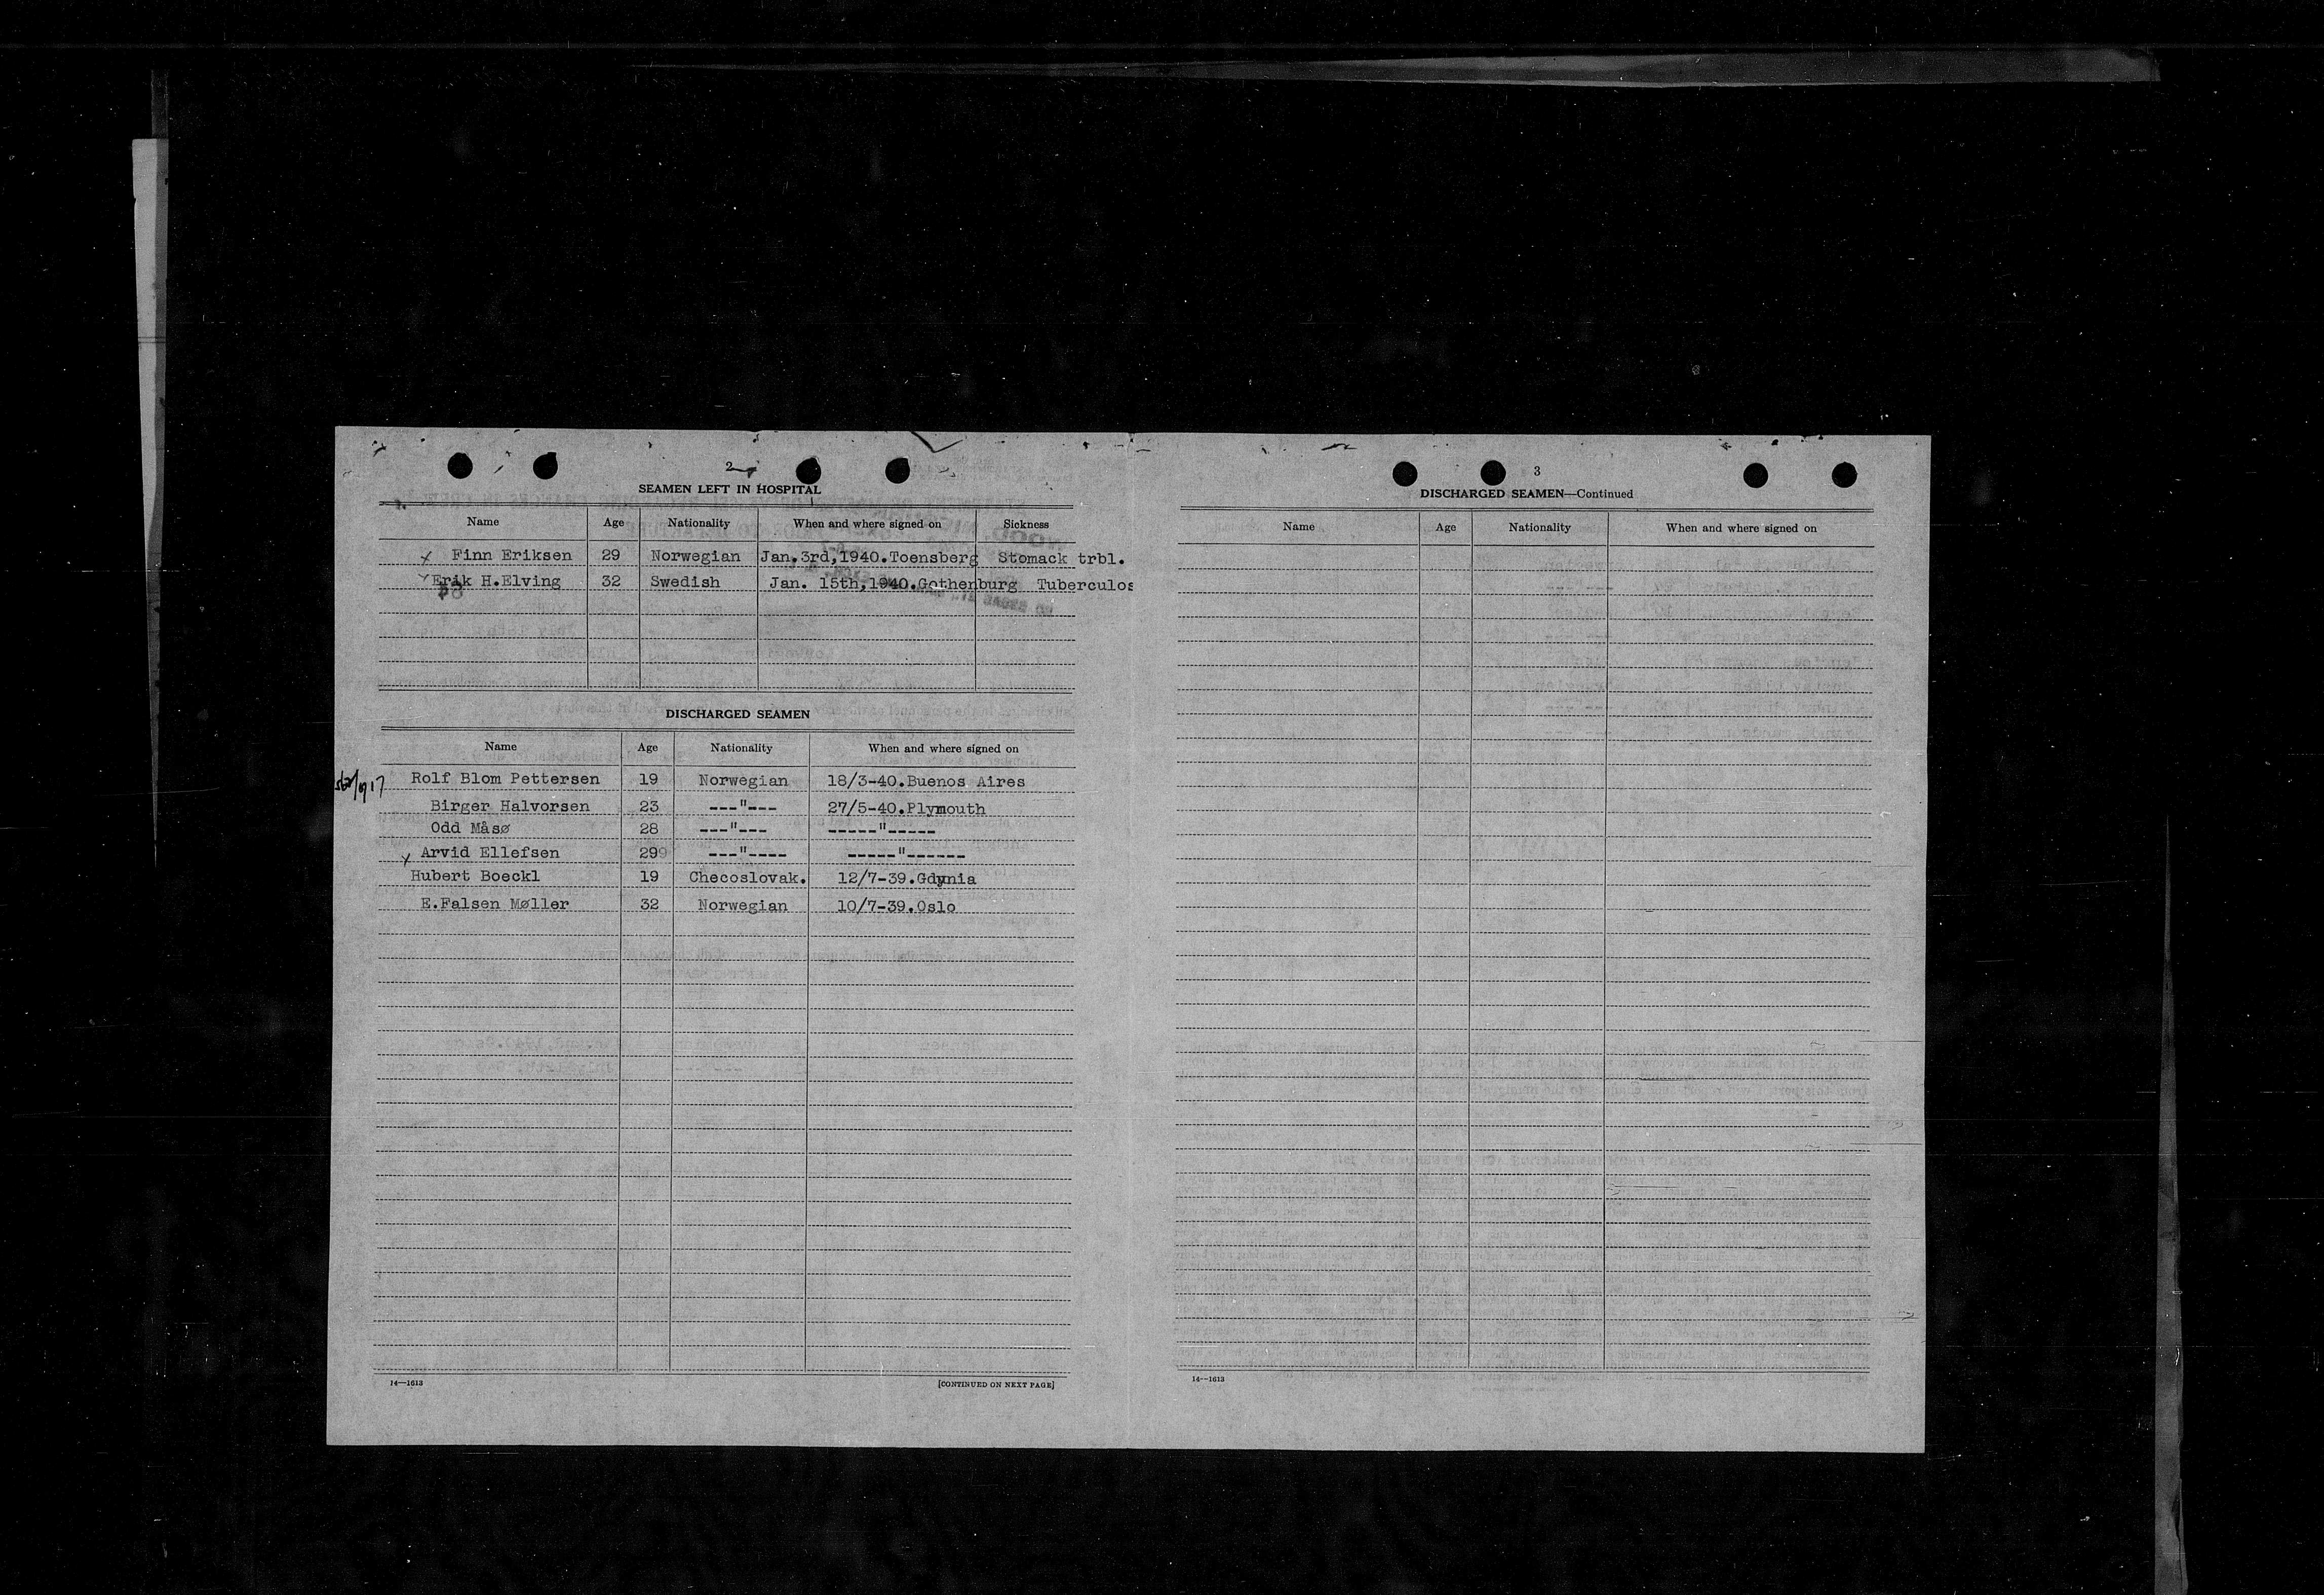 2
SEAMEN LEFT IN HOSPITAL
Name Age Nationality When and where signed on Sickness
x Finn Eriksen 29 Norwegian Jan.3rd,1940.Toensberg Stomack trbl.
x Erik H.Elving 32 Swedish Jan. 15th,1940.Gothenburg Tuberculos
DISCHARGED SEAMEN
Name Age Nationality When and where signed on
Rolf Blom Pettersen 19 Norwegian 18/3-40.Buenos Aires
Birger Halvorsen 23 ---"--- 27/5-40.Plymouth
Odd Måsø 28 ---"--- -----"-----
x Arvid Ellefsen 299 ---"---- -----"------
Hubert Boeckl 19 Checoslovak. 12/7-39.Gdynia
E.Falsen Møller 32 Norwegian 10/7-39.Oslo
14—1613 [CONTINUED ON NEXT PAGE]
3
DISCHARGED SEAMEN—Continued
Name Age Nationality When and where signed on
14—1613